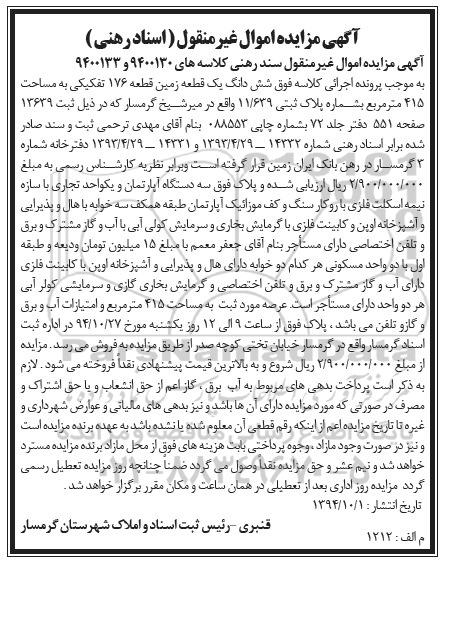 آگهی مزایده اموال غیرمنقول (اسناد رهنی)
آگهی مزایده اموال غیرمنقول سند رهنی کلاسه های ۹۴۰۰۱۳۰ و ۹۴۰۰۱۳۳
به موجب پرونده اجرائی کلاسه فوق شش دانگ یک قطعه زمین قطعه ۱۷۶ تفکیکی به مساحت
۴۱۵ مترمربع بشماره پلاک ثبتی ۱۱/۶۳۹ واقع در میرشیخ گرمسار که در ذیل ثبت ۱۳۶۳۹
صفحه ۵۵۱ دفتر جلد ۷۲ بشماره چاپی ۰۸۸۵۵۳ بنام آقای مهدی ترحمی ثبت و سند صادر
شده برابر اسناد رهنی شماره ۱۴۳۳۲ – ۱۳۹۳/۴/۲۹ و ۱۴۳۳۱ – ۱۳۹۳/۴/۲۹ دفترخانه شماره
۳ گرمسار در رهن بانک ایران زمین قرار گرفته است وبرابر نظریه کارشناس رسمی به مبلغ
۲/۹۰۰/۰۰۰/۰۰۰ ریال ارزیابی شده و پلاک فوق سه دستگاه آپارتمان و یکواحد تجاری با سازه
نیمه اسکلت فلزی با روکار سنگ و کف موزائیک آپارتمان طبقه همکف سه خوابه با هال و پذیرایی
و آشپزخانه اوپن و کابینت فلزی با گرمایش بخاری و سرمایش کولی آبی با آب و گاز مشترک و برق
و تلفن اختصاصی دارای مستأجر بنام آقای جعفر معمم با مبلغ ۱۵ میلیون تومان ودیعه و طبقه
اول با دو واحد مسکونی هر کدام دو خوابه دارای هال و پذیرایی و آشپزخانه اوپن با کابینت فلزی
دارای آب و گاز مشترک و برق و تلفن اختصاصی و گرمایش بخاری گازی و سرمایشی کولر آبی
هر دو واحد دارای مستأجر است. عرصه مورد ثبت به مساحت ۴۱۵ مترمربع و امتیازات آب و برق
و گاز و تلفن می باشد ، پلاک فوق از ساعت ۹ الی ۱۲ روز یکشنبه مورخ ۹۴/۱۰/۲۷ در اداره ثبت
اسناد گرمسار واقع در گرمسار خیابان تختی کوچه صدر از طریق مزایده به فروش می رسد. مزایده
از مبلغ ۲/۹۰۰/۰۰۰/۰۰۰ ریال شروع و به بالاترین قیمت پیشنهادی نقداً فروخته می شود . لازم
به ذکر است پرداخت بدهی های مربوط به آب برق ، گاز اعم از حق انشعاب و یا حق اشتراک و
مصرف در صورتی که مورد مزایده دارای آن ها باشد و نیز بدهی های مالیاتی و عوارض شهرداری و
غیره تا تاریخ مزایده اعم از اینکه رقم قطعی آن معلوم شده یا نشده باشد به عهده برنده مزایده است
و نیز در صورت وجود مازاد ، وجوه پرداختی بابت هزینه های فوق از محل مازاد برنده مزایده مسترد
خواهد شد و نیم عشر و حق مزایده نقداً وصول می گردد ضمناً چنانچه روز مزایده تعطیل رسمی
گردد مزایده روز اداری بعد از تعطیلی در همان ساعت و مکان مقرر برگزار خواهد شد .
تاریخ انتشار : ۱۳۹۴/۱۰/۱
قنبری -رئیس ثبت اسناد و املاک شهرستان گرمسار
م الف : ۱۲۱۲